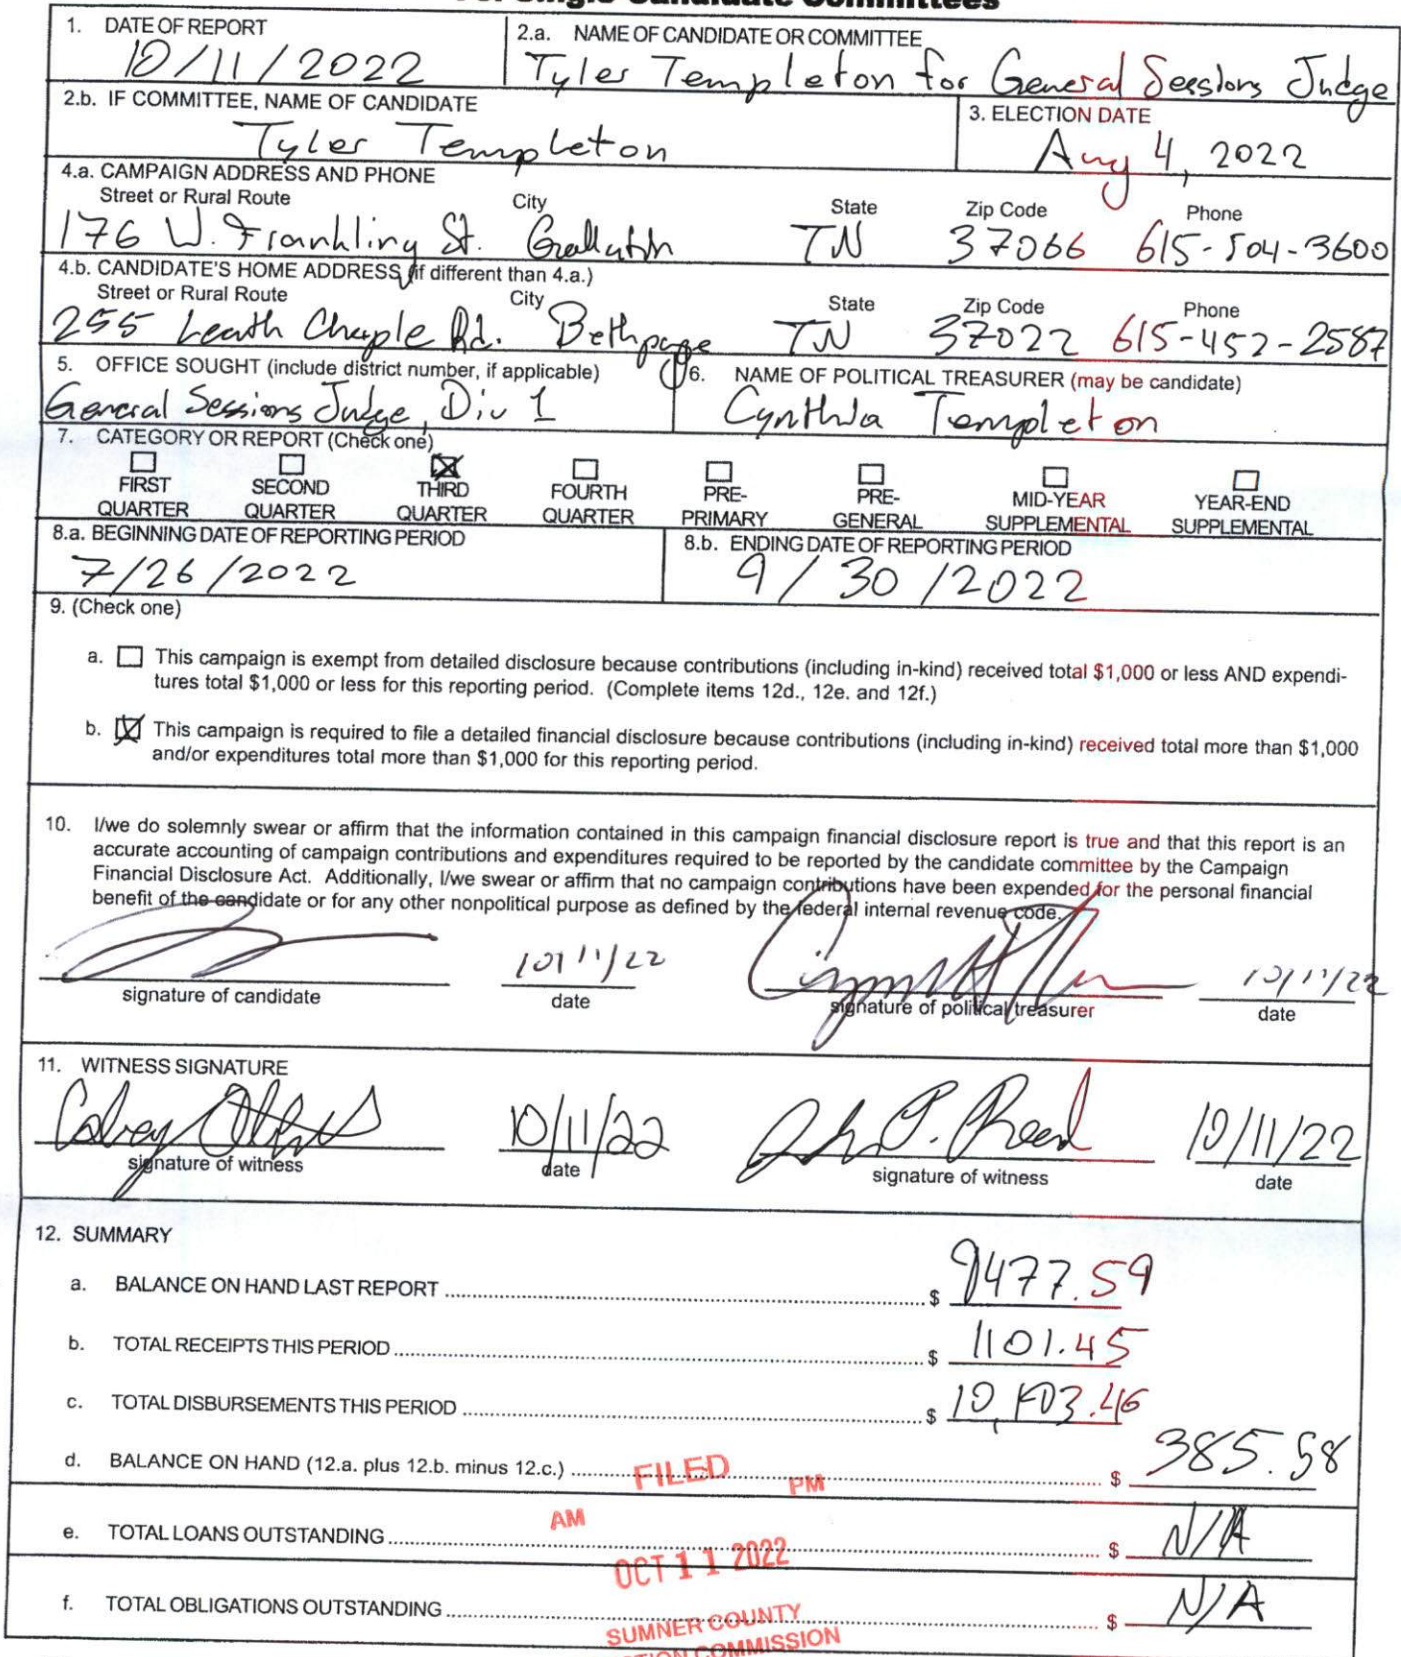 For Single-Candidate Committees
1. DATE OF REPORT
10/11/2022
2.a. NAME OF CANDIDATE OR COMMITTEE
Tyler Templeton for General Sessions Judge
2.b. IF COMMITTEE, NAME OF CANDIDATE
Tyler Templeton
3. ELECTION DATE
Aug 4, 2022
4.a. CAMPAIGN ADDRESS AND PHONE
Street or Rural Route City State Zip Code Phone
176 W. Frankling St. Gallatin TN 37066 615-504-3600
4.b. CANDIDATE'S HOME ADDRESS (if different than 4.a.)
Street or Rural Route City State Zip Code Phone
255 Leath Chaple Rd. Bethpage TN 37022 615-452-2587
5. OFFICE SOUGHT (include district number, if applicable)
General Sessions Judge, Div 1
6. NAME OF POLITICAL TREASURER (may be candidate)
Cynthia Templeton
7. CATEGORY OR REPORT (Check one)
FIRST QUARTER
SECOND QUARTER
THIRD QUARTER
FOURTH QUARTER
PRE-PRIMARY
PRE-GENERAL
MID-YEAR SUPPLEMENTAL
YEAR-END SUPPLEMENTAL
8.a. BEGINNING DATE OF REPORTING PERIOD
7/26/2022
8.b. ENDING DATE OF REPORTING PERIOD
9/30/2022
9. (Check one)
a. This campaign is exempt from detailed disclosure because contributions (including in-kind) received total $1,000 or less AND expendi-
tures total $1,000 or less for this reporting period. (Complete items 12d., 12e. and 12f.)
b. This campaign is required to file a detailed financial disclosure because contributions (including in-kind) received total more than $1,000
and/or expenditures total more than $1,000 for this reporting period.
10. I/we do solemnly swear or affirm that the information contained in this campaign financial disclosure report is true and that this report is an
accurate accounting of campaign contributions and expenditures required to be reported by the candidate committee by the Campaign
Financial Disclosure Act. Additionally, I/we swear or affirm that no campaign contributions have been expended for the personal financial
benefit of the candidate or for any other nonpolitical purpose as defined by the federal internal revenue code.
10/11/22 10/11/22
signature of candidate date signature of political treasurer date
11. WITNESS SIGNATURE
10/11/22 P. Reed 10/11/22
signature of witness date signature of witness date
12. SUMMARY
a. BALANCE ON HAND LAST REPORT $ 9477.59
b. TOTAL RECEIPTS THIS PERIOD $ 1101.45
c. TOTAL DISBURSEMENTS THIS PERIOD $
d. BALANCE ON HAND (12.a. plus 12.b. minus 12.c.) $ 385.58
e. TOTAL LOANS OUTSTANDING $ N/A
f. TOTAL OBLIGATIONS OUTSTANDING $ N/A
FILED
AM PM
OCT 11 2022
SUMNER COUNTY
COMMISSION